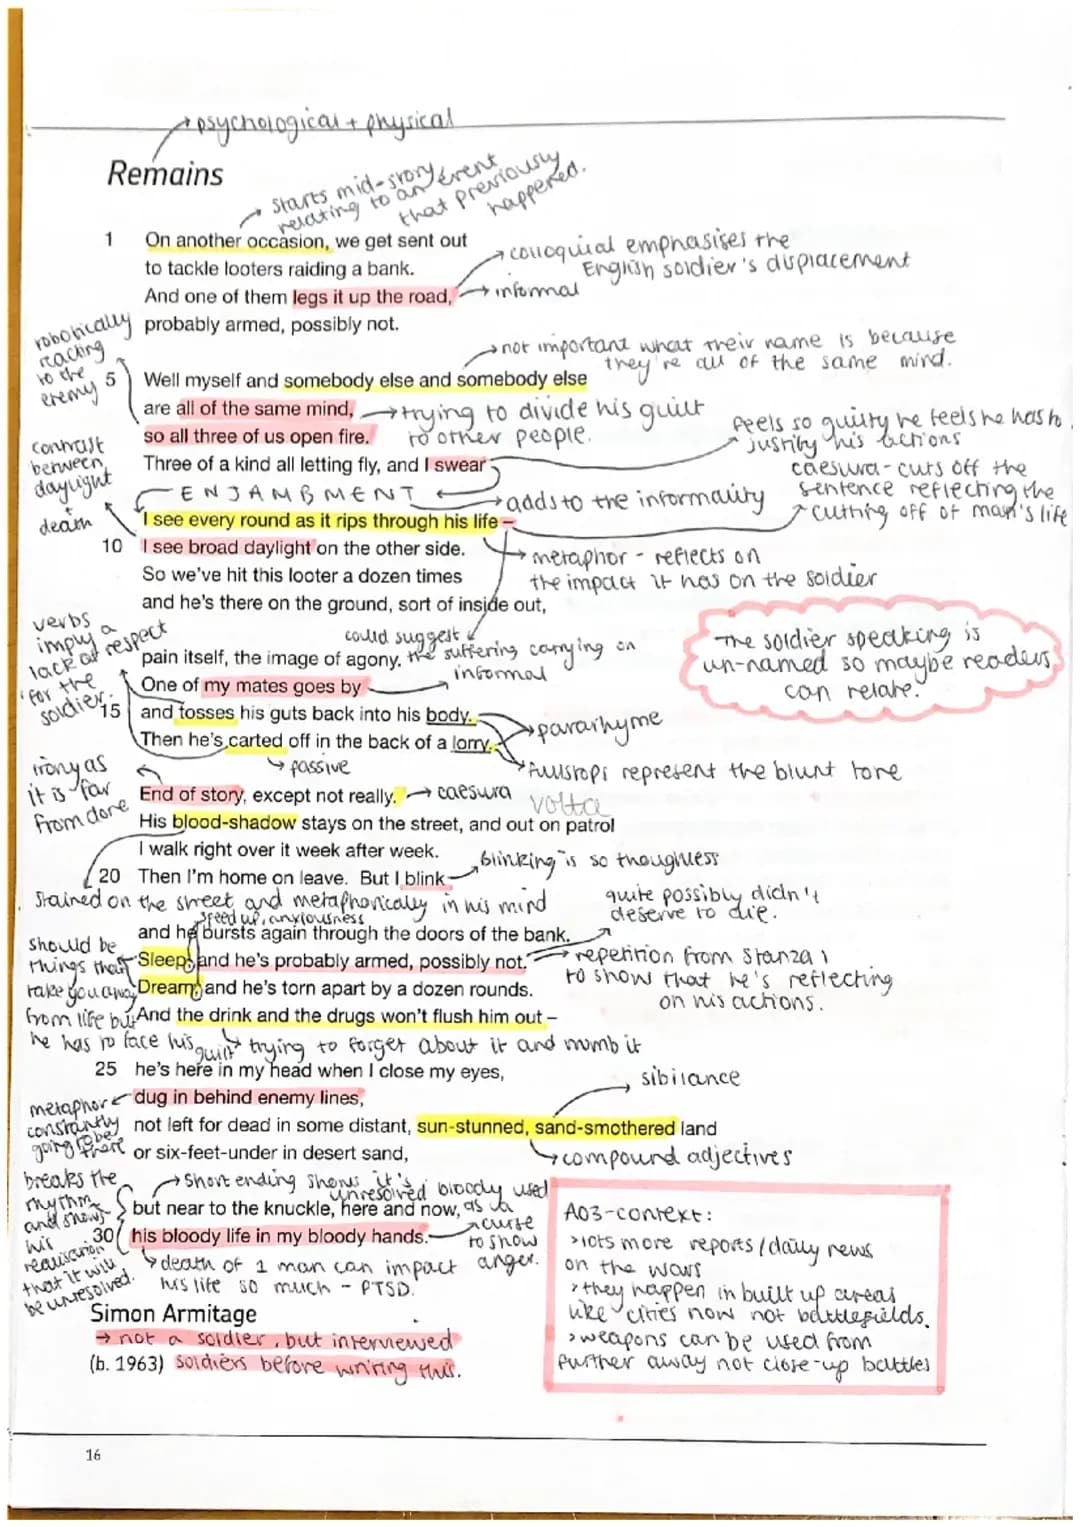 psychological + physical
Remains
Starts mid-story
relating to an event
that previously
happened.
1 On another occasion, we get sent out
to tackle looters raiding a bank.
And one of them legs it up the road,
probably armed, possibly not.
colloquial emphasises the
English soldier's displacement
informal
robotically
reacting
to the
enemy
not important what their name is because
they're all of the same mind.
5 Well myself and somebody else and somebody else
are all of the same mind,
so all three of us open fire.
Three of a kind all letting fly, and I swear
trying to divide his guilt
to other people.
feels so guilty he feels he has to
justify his actions
contrast
between
daylight
+
death
ENJAMBMENT
adds to the informality
caesura - cuts off the
sentence reflecting the
cutting off of man's life
I see every round as it rips through his life –
10 I see broad daylight on the other side.
So we've hit this looter a dozen times
and he's there on the ground, sort of inside out,
metaphor - reflects on
the impact it has on the soldier
verbs
imply a
lack of respect
for the
soldier.
could suggest
the suffering carrying on
pain itself, the image of agony.
One of my mates goes by
informal
15 and tosses his guts back into his body.
Then he's carted off in the back of a lorry.
pararhyme
passive
fullstops represent the blunt tone
The soldier speaking is
un-named so maybe readers
can relate.
irony as
it is far
from done
End of story, except not really.
caesura
volta
His blood-shadow stays on the street, and out on patrol
I walk right over it week after week.
20 Then I'm home on leave. But I blink
"blinking" is so thoughless
Stained on the street and metaphorically in his mind
speed up, anxiousness
quite possibly didn't
deserve to die.
and he bursts again through the doors of the bank.
Sleep, and he's probably armed, possibly not.
Dream, and he's torn apart by a dozen rounds.
And the drink and the drugs won't flush him out –
repetition from Stanza 1
to show that he's reflecting
on his actions.
should be
things that
take you away
from life but
he has to face his
guilt
trying to forget about it and numb it
25 he's here in my head when I close my eyes,
dug in behind enemy lines,
not left for dead in some distant, sun-stunned, sand-smothered land
or six-feet-under in desert sand,
sibilance
compound adjectives
metaphor
constantly
going to be
there
breaks the
rhythm
and shows
his
realisation
that it will
be unresolved.
Short ending shows it's
unresolved
bloody used
as a
curse
to show
anger.
but near to the knuckle, here and now,
30 his bloody life in my bloody hands.
death of 1 man can impact
his life so much - PTSD.
Simon Armitage
→ not a soldier, but interviewed
(b. 1963) soldiers before writing this.
AO3-context:
>lots more reports/daily news
on the wars
>they happen in built up areas
like cities now not battlefields.
>weapons can be used from
further away not close-up battles
16